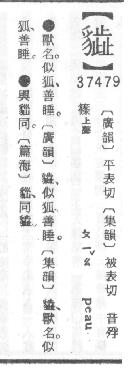 【䝤】
37479
〔廣韻〕平表切〔集韻〕被表切 音殍
篠上聲 ㄆㄧㄠˇ peau
●獸名。似狐、善睡。〔廣韻〕䝤、似狐、善睡。〔集韻〕䝤、獸名。似
狐、善睡。●與貓同。〔篇海〕貓、同䝤。